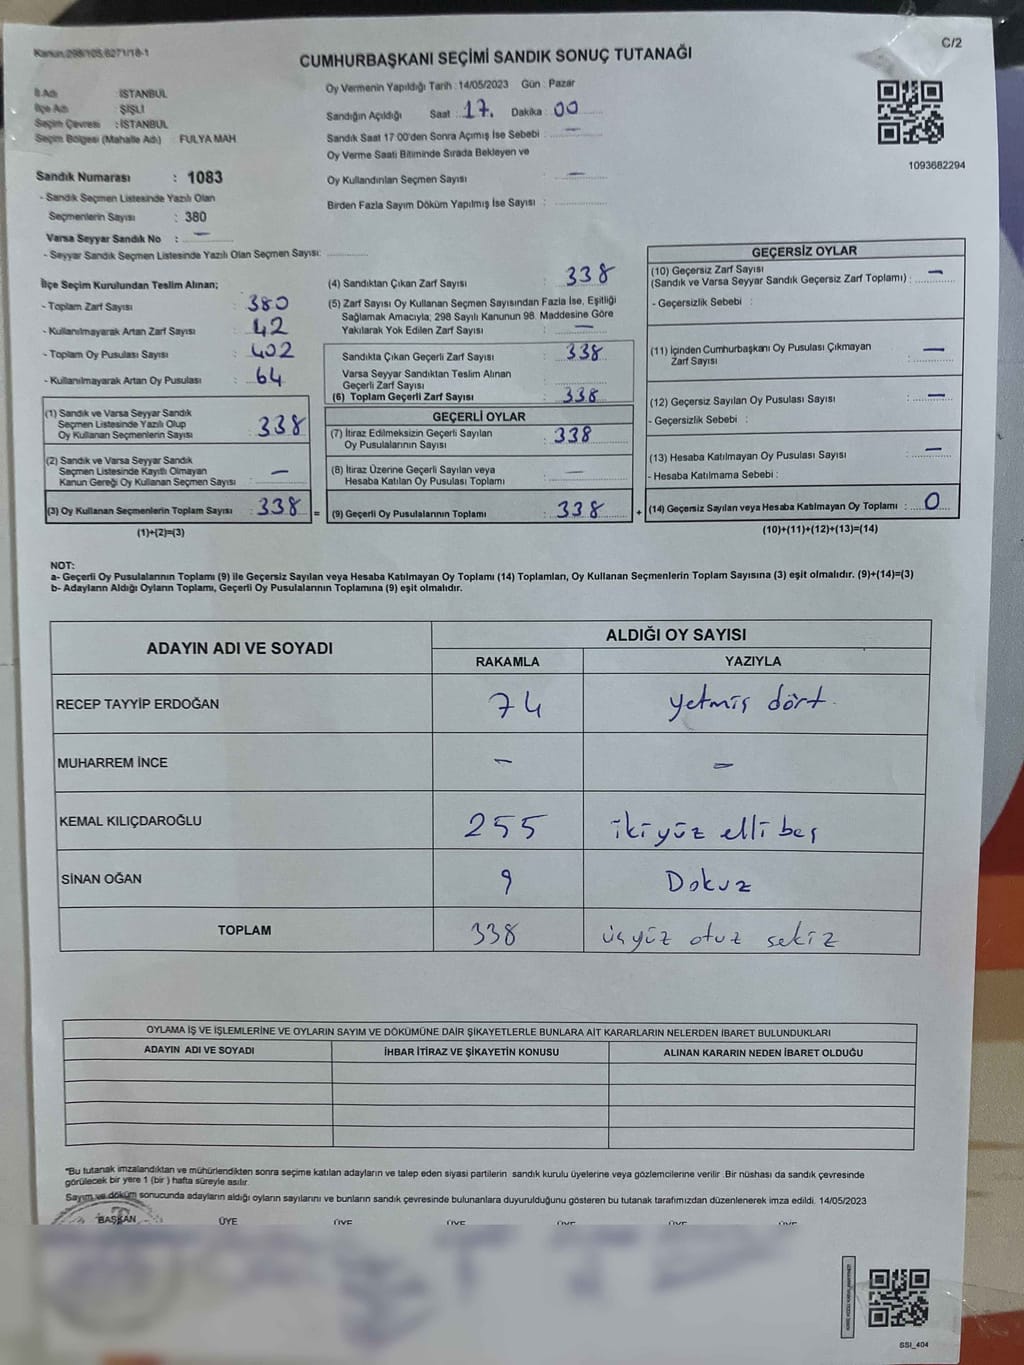 Kanun:298/105,6271/18-1
C/2
CUMHURBAŞKANI SEÇİMİ SANDIK SONUÇ TUTANAĞI
İl Adı : İSTANBUL
İlçe Adı : ŞİŞLİ
Seçim Çevresi : İSTANBUL
Seçim Bölgesi (Mahalle Adı) FULYA MAH
Sandık Numarası : 1083
- Sandık Seçmen Listesinde Yazılı Olan
Seçmenlerin Sayısı : 380
Varsa Seyyar Sandık No : —
- Seyyar Sandık Seçmen Listesinde Yazılı Olan Seçmen Sayısı:
Oy Vermenin Yapıldığı Tarih : 14/05/2023 Gün : Pazar
Sandığın Açıldığı Saat : 17. Dakika : 00
Sandık Saat 17:00'den Sonra Açımış İse Sebebi : —
Oy Verme Saati Bitiminde Sırada Bekleyen ve
Oy Kullandırılan Seçmen Sayısı : —
Birden Fazla Sayım Döküm Yapılmış İse Sayısı :
1093682294
İlçe Seçim Kurulundan Teslim Alınan;
- Toplam Zarf Sayısı : 380
- Kullanılmayarak Artan Zarf Sayısı : 42
- Toplam Oy Pusulası Sayısı : 402
- Kullanılmayarak Artan Oy Pusulası : 64
(1) Sandık ve Varsa Seyyar Sandık
Seçmen Listesinde Yazılı Olup
Oy Kullanan Seçmenlerin Sayısı : 338
(2) Sandık ve Varsa Seyyar Sandık
Seçmen Listesinde Kayıtlı Olmayan
Kanun Gereği Oy Kullanan Seçmen Sayısı : —
(3) Oy Kullanan Seçmenlerin Toplam Sayısı : 338 =
(1)+(2)=(3)
(4) Sandıktan Çıkan Zarf Sayısı : 338
(5) Zarf Sayısı Oy Kullanan Seçmen Sayısından Fazla İse, Eşitliği
Sağlamak Amacıyla; 298 Sayılı Kanunun 98. Maddesine Göre
Yakılarak Yok Edilen Zarf Sayısı : —
Sandıkta Çıkan Geçerli Zarf Sayısı : 338
Varsa Seyyar Sandıktan Teslim Alınan
Geçerli Zarf Sayısı :
(6) Toplam Geçerli Zarf Sayısı : 338
GEÇERLİ OYLAR
(7) İtiraz Edilmeksizin Geçerli Sayılan
Oy Pusulalarının Sayısı : 338
(8) İtiraz Üzerine Geçerli Sayılan veya
Hesaba Katılan Oy Pusulası Toplamı : —
(9) Geçerli Oy Pusulalarının Toplamı : 338 +
GEÇERSİZ OYLAR
(10) Geçersiz Zarf Sayısı
(Sandık ve Varsa Seyyar Sandık Geçersiz Zarf Toplamı) : —
- Geçersizlik Sebebi :
(11) İçinden Cumhurbaşkanı Oy Pusulası Çıkmayan
Zarf Sayısı : —
(12) Geçersiz Sayılan Oy Pusulası Sayısı : —
- Geçersizlik Sebebi :
(13) Hesaba Katılmayan Oy Pusulası Sayısı : —
- Hesaba Katılmama Sebebi :
(14) Geçersiz Sayılan veya Hesaba Katılmayan Oy Toplamı : 0
(10)+(11)+(12)+(13)=(14)
NOT:
a- Geçerli Oy Pusulalarının Toplamı (9) ile Geçersiz Sayılan veya Hesaba Katılmayan Oy Toplamı (14) Toplamları, Oy Kullanan Seçmenlerin Toplam Sayısına (3) eşit olmalıdır. (9)+(14)=(3)
b- Adayların Aldığı Oyların Toplamı, Geçerli Oy Pusulalarının Toplamına (9) eşit olmalıdır.
ADAYIN ADI VE SOYADI ALDIĞI OY SAYISI
RAKAMLA YAZIYLA
RECEP TAYYİP ERDOĞAN 74 yetmiş dört
MUHARREM İNCE — —
KEMAL KILIÇDAROĞLU 255 ikiyüz elli beş
SİNAN OĞAN 9 Dokuz
TOPLAM 338 üçyüz otuz sekiz
OYLAMA İŞ VE İŞLEMLERİNE VE OYLARIN SAYIM VE DÖKÜMÜNE DAİR ŞİKAYETLERLE BUNLARA AİT KARARLARIN NELERDEN İBARET BULUNDUKLARI
ADAYIN ADI VE SOYADI İHBAR İTİRAZ VE ŞİKAYETİN KONUSU ALINAN KARARIN NEDEN İBARET OLDUĞU
"Bu tutanak imzalandıktan ve mühürlendikten sonra seçime katılan adayların ve talep eden siyasi partilerin sandık kurulu üyelerine veya gözlemcilerine verilir .Bir nüshası da sandık çevresinde
görülecek bir yere 1 (bir ) hafta süreyle asılır.
Sayım ve döküm sonucunda adayların aldığı oyların sayılarını ve bunların sandık çevresinde bulunanlara duyurulduğunu gösteren bu tutanak tarafımızdan düzenlenerek imza edildi. 14/05/2023
BAŞKAN ÜYE ÜYE ÜYE ÜYE ÜYE ÜYE
SSI_404